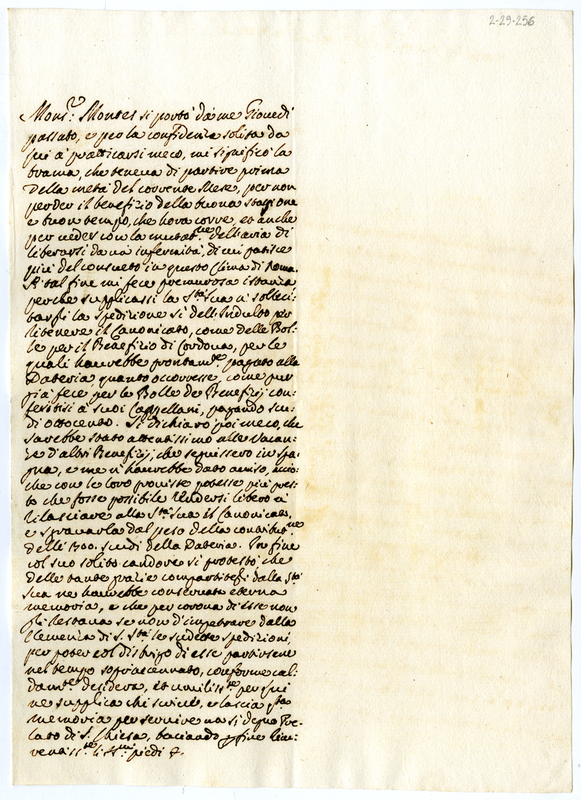 2-29-256
Mons.r Montes si portò da me Giovedi
passato, e per la confidenza solita da
lui à pratticarsi meco, mi significò la
brama, che teneva di partire prima
della metà del corrente Mese, per non
perder il benefizio della buona stagione
e buon tempo, che hora corre, et anche
per veder con la mutat.ne dell'aria di
liberarsi da una infermità, di cui patisce
più del consueto in questo Clima di Roma.
A tal fine mi fece premurosa istanza
perche supplicassi la S.tà sua à solleci-
targli la spedizione sì dell'Indulto per
ritenere il Canonicato, come delle Bol-
le per il Benefizio di Cordova, per le
quali haurebbe prontam.te pagato alla
Dataria, quanto occorresse, come pur
già fece per le Bolle de Benefizj con-
feritisi à suoi Cappellani, pagando scu-
di ottocento. Si dichiarò poi meco, che
sarebbe stato attentissimo alle vacan-
ze d'altri Benefizj, che seguissero in Spa-
gna, e me n'haurebbe dato aviso, acciò-
che con le loro proviste potesse più pres-
to che fosse possibile rendersi libero à
rilasciare alla S.tà sua il Canonicato,
e sgravarla dal peso della contribut.ne
delli 1700. scudi della Dataria. In fine
col suo solito candore si protestò che
delle tante grazie compartitegli dalla S.tà
sua ne haurebbe conservato eterna
memoria, e che per corona di esse non
gli restava se non d'impetrare dalla
Clemenza di S. S.tà le sudette spedizioni,
per poter col disbrigo di esse partirsene
nel tempo sopraccennato, conforme cal-
dam.te desidera, et umiliss.te per lui
ne supplica chi scrive, e lascia q.ta
memoria per sovvenire un sì degno Pre-
lato di S. Chiesa, baciando per fine
li piedi